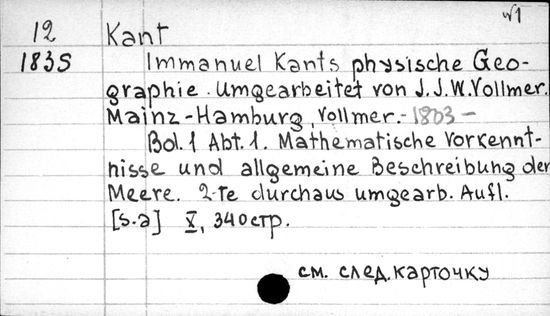 w1
12 Kant
1835 Immanuel Kants physische Geo-
graphie. Umgearbeitet von J.J.W.Vollmer.
Mainz-Hamburg, Vollmer.- 1803 -
Bd.1 Abt.1. Mathematische Vorkennt-
nisse und allgemeine Beschreibung der
Meere. 2-te durchaus umgearb. Aufl.
[s.a] X, 340 стр.
см. след. карточку